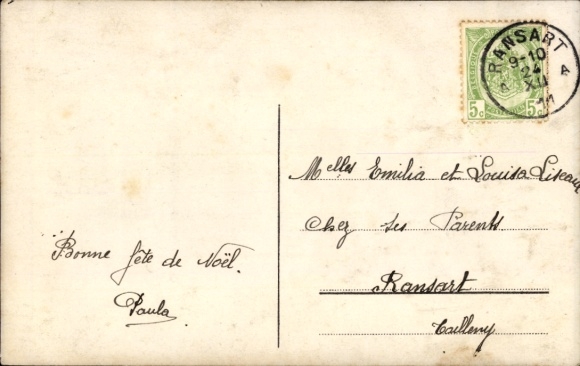 RANSART
9-10
24
XII
11
5c 5c
Melles Emilia et Louisa Liseau
Chez Ses Parents
Ransart
Bonne fête de Noël.
Paula